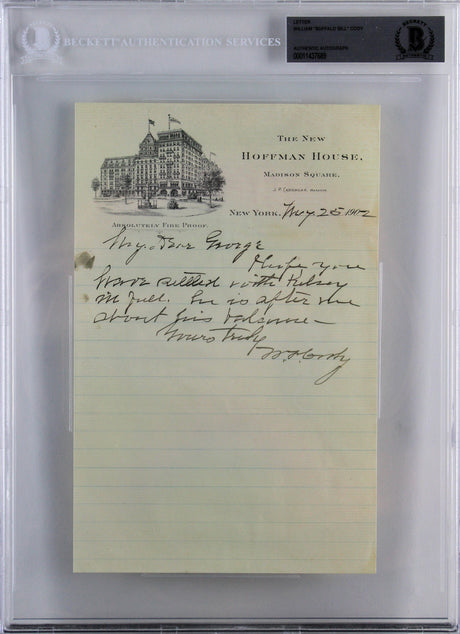 BECKETT AUTHENTICATION SERVICES
LETTER
WILLIAM "BUFFALO BILL" CODY
AUTHENTIC AUTOGRAPH
00011437689
BECKETT
THE NEW
HOFFMAN HOUSE,
MADISON SQUARE,
ABSOLUTELY FIRE PROOF.
NEW YORK, 25 1902
My Dear George
Hope you
have settled with Kelsey
in full. he is after me
about his balance—
Yours truly
W.F. Cody